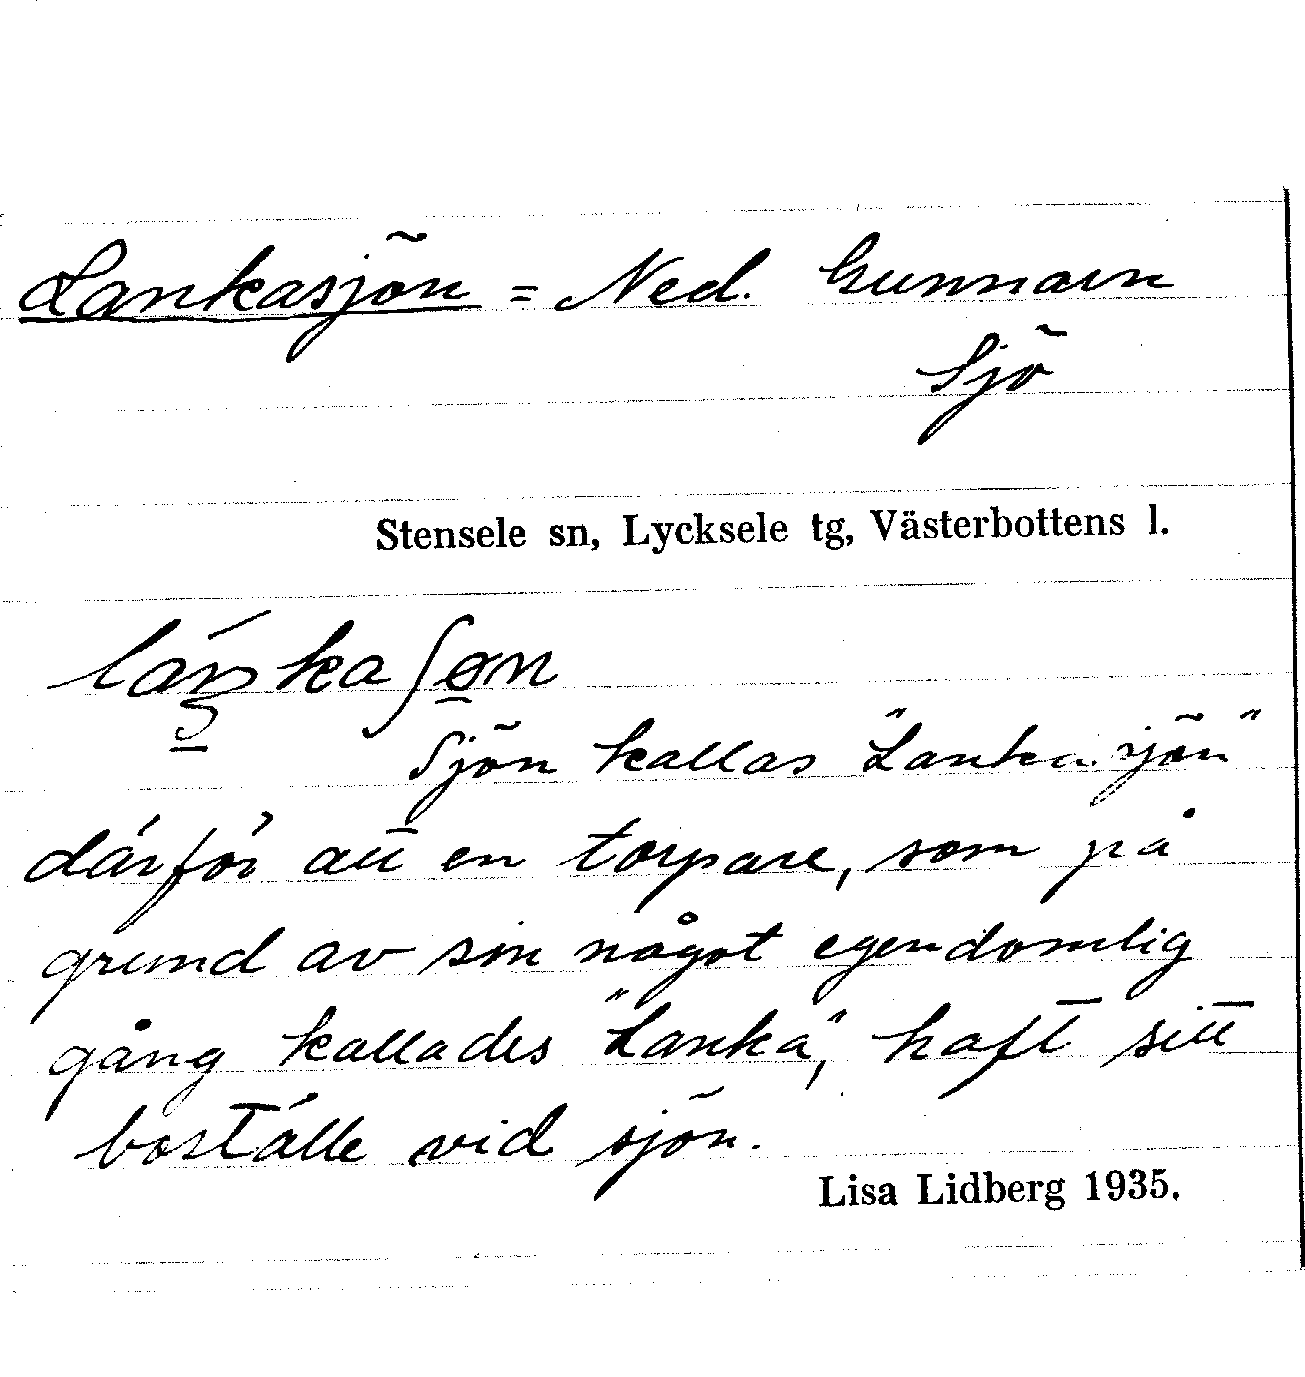 Lankasjön = Ned. Gunnarn
Sjö
Stensele sn, Lycksele tg, Västerbottens l.
Sjön kallas "Lankasjön"
därför att en torpare, som på
grund av sin något egendomlig
gång kallades "Lanka", haft sitt
boställe vid sjön.
Lisa Lidberg 1935.